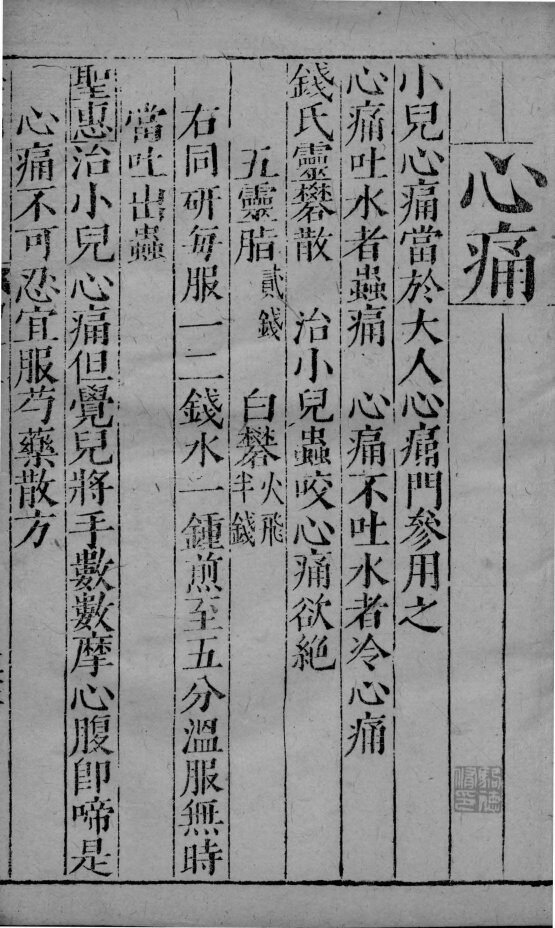 心痛
小兒心痛當於大人心痛門參用之
心痛吐水者蟲痛　心痛不吐水者冷心痛
錢氏靈礬散　治小兒蟲咬心痛欲絶
五靈脂貳錢　白礬火飛半錢
右同研每服一二錢水一鍾煎至五分溫服無時
當吐出蟲
聖惠治小兒心痛但覺兒將手數數摩心腹卽啼是
心痛不可忍宜服芍藥散方